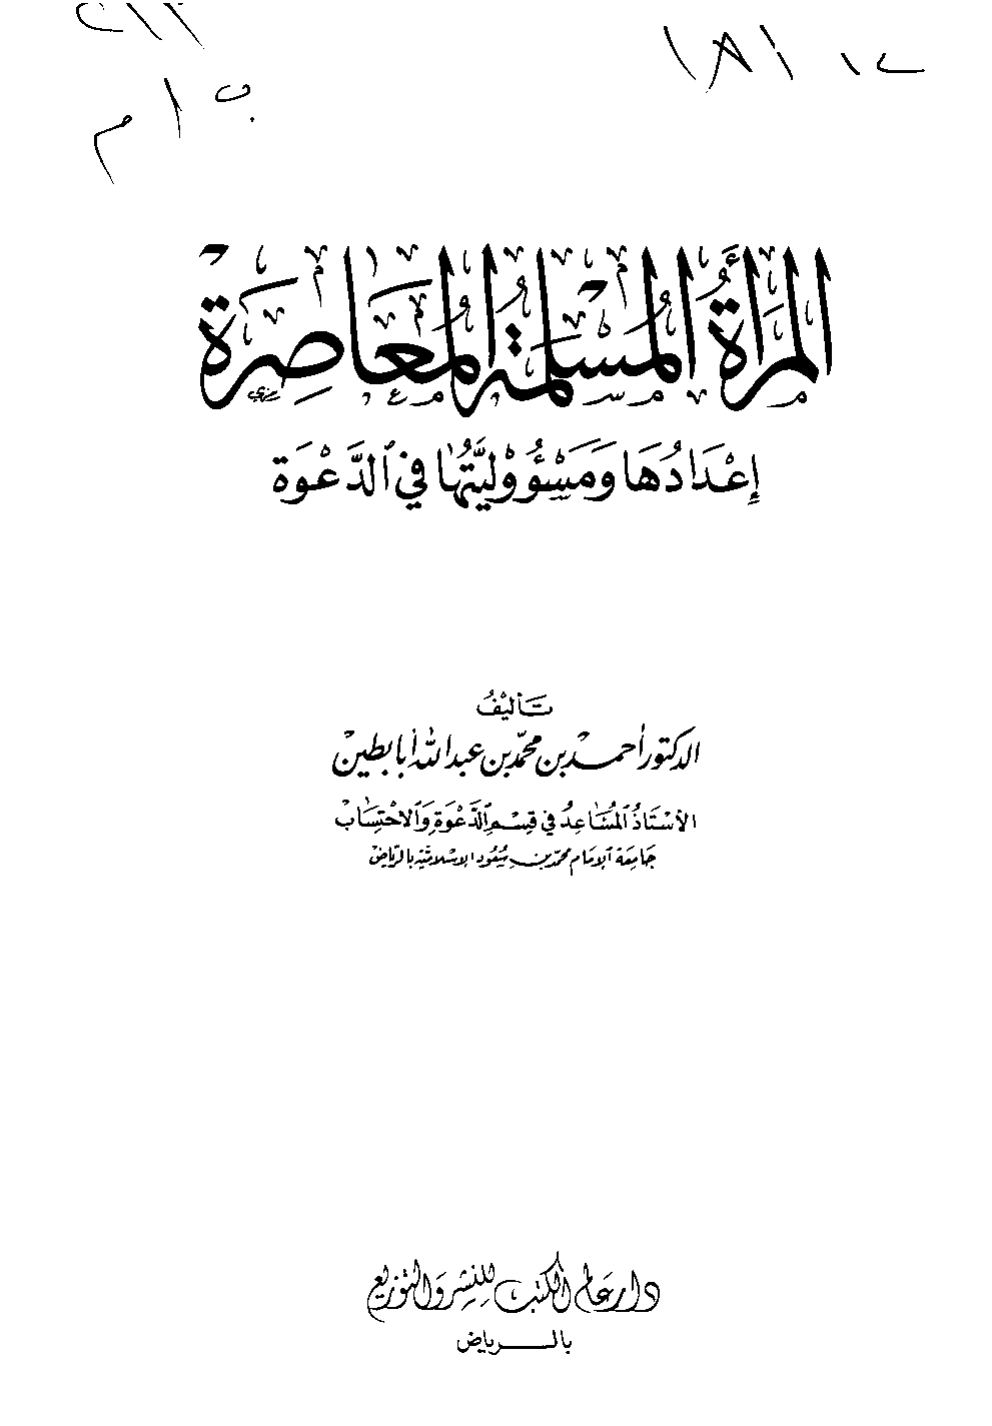 المرأة المسلمة المعاصرة
إعدادها ومسؤوليتها في الدعوة
تأليف
الدكتور أحمد بن محمد بن عبدالله أبابطين
الأستاذ المساعد في قسم الدعوة والاحتساب
جامعة الإمام محمد بن سعود الإسلامية بالرياض
دار عالم الكتب للنشر والتوزيع
بالرياض